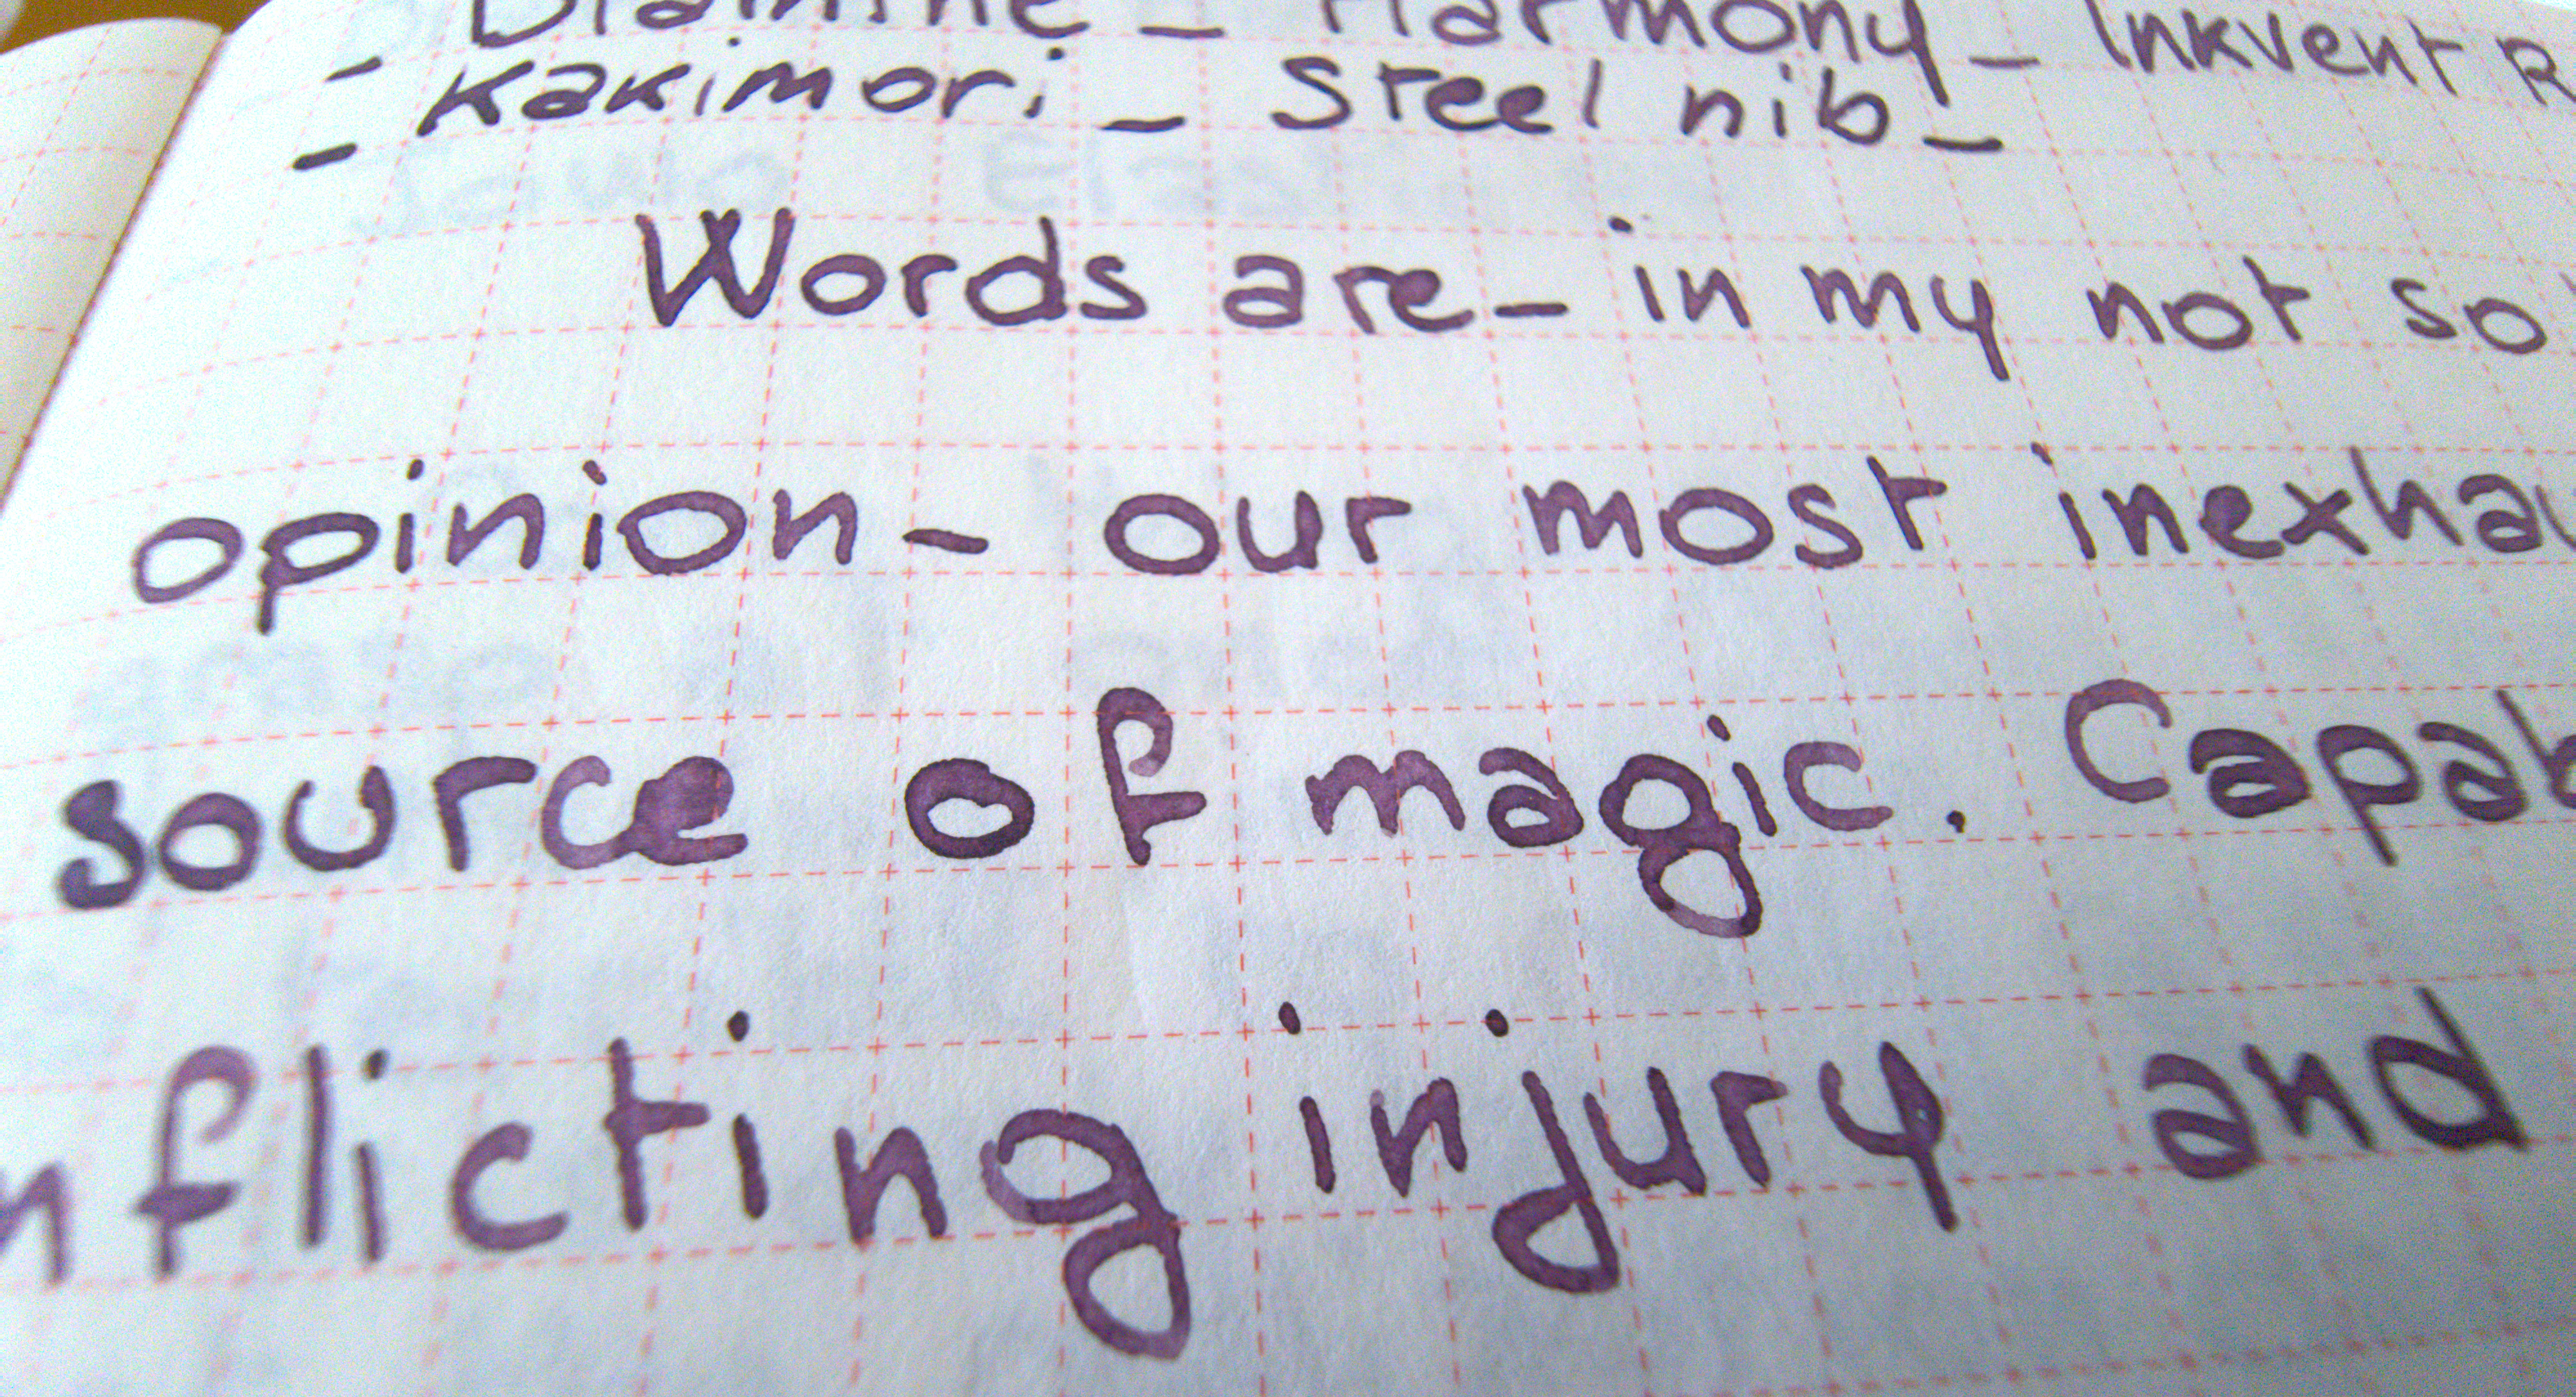 - Diamine - Harmony - Inkvent R
- Kakimori - Steel nib -
Words are - in my not so
opinion - our most inexhau
source of magic. Capab
nflicting injury and